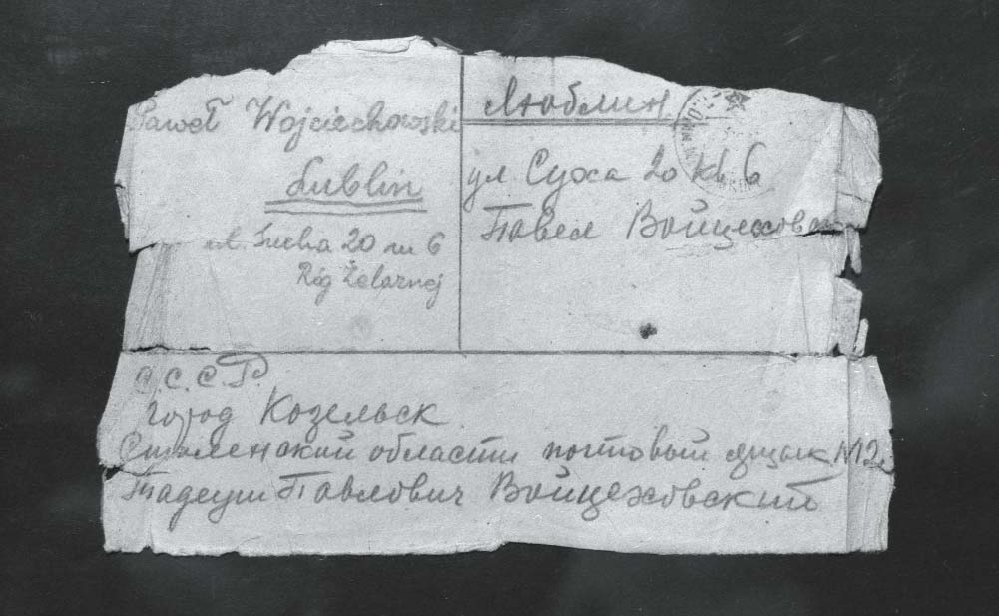 Paweł Wojciechowski
Lublin
ul. Sucha 20 m 6
Róg Żelaznej
Люблин
ул Суха 20 кв 6
Павел
С.С.С.Р.
город Козельск
Смоленский области почтовый ящык N12
Тадеуш Павлович Войцеховский